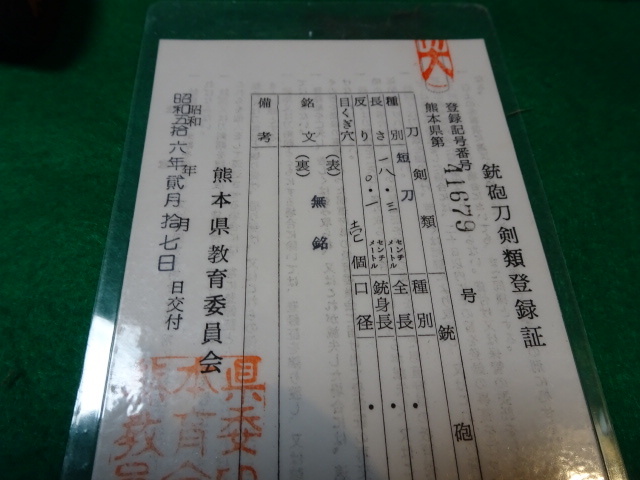 銃砲刀剣類登録証
登録記号番号
熊本県第 41679 号
刀剣類 銃砲
種別 短刀 種別 ・
長さ 一八・三 センチメートル 全長 ・
反り 〇・一 センチメートル 銃身長 ・
目くぎ穴 壱個 口径 ・
銘文 (表) 無銘
(裏)
備考
熊本県教育委員会
昭和 年 月 日交付
昭和五拾六年貳月拾七日
県委印
本育会
熊教員